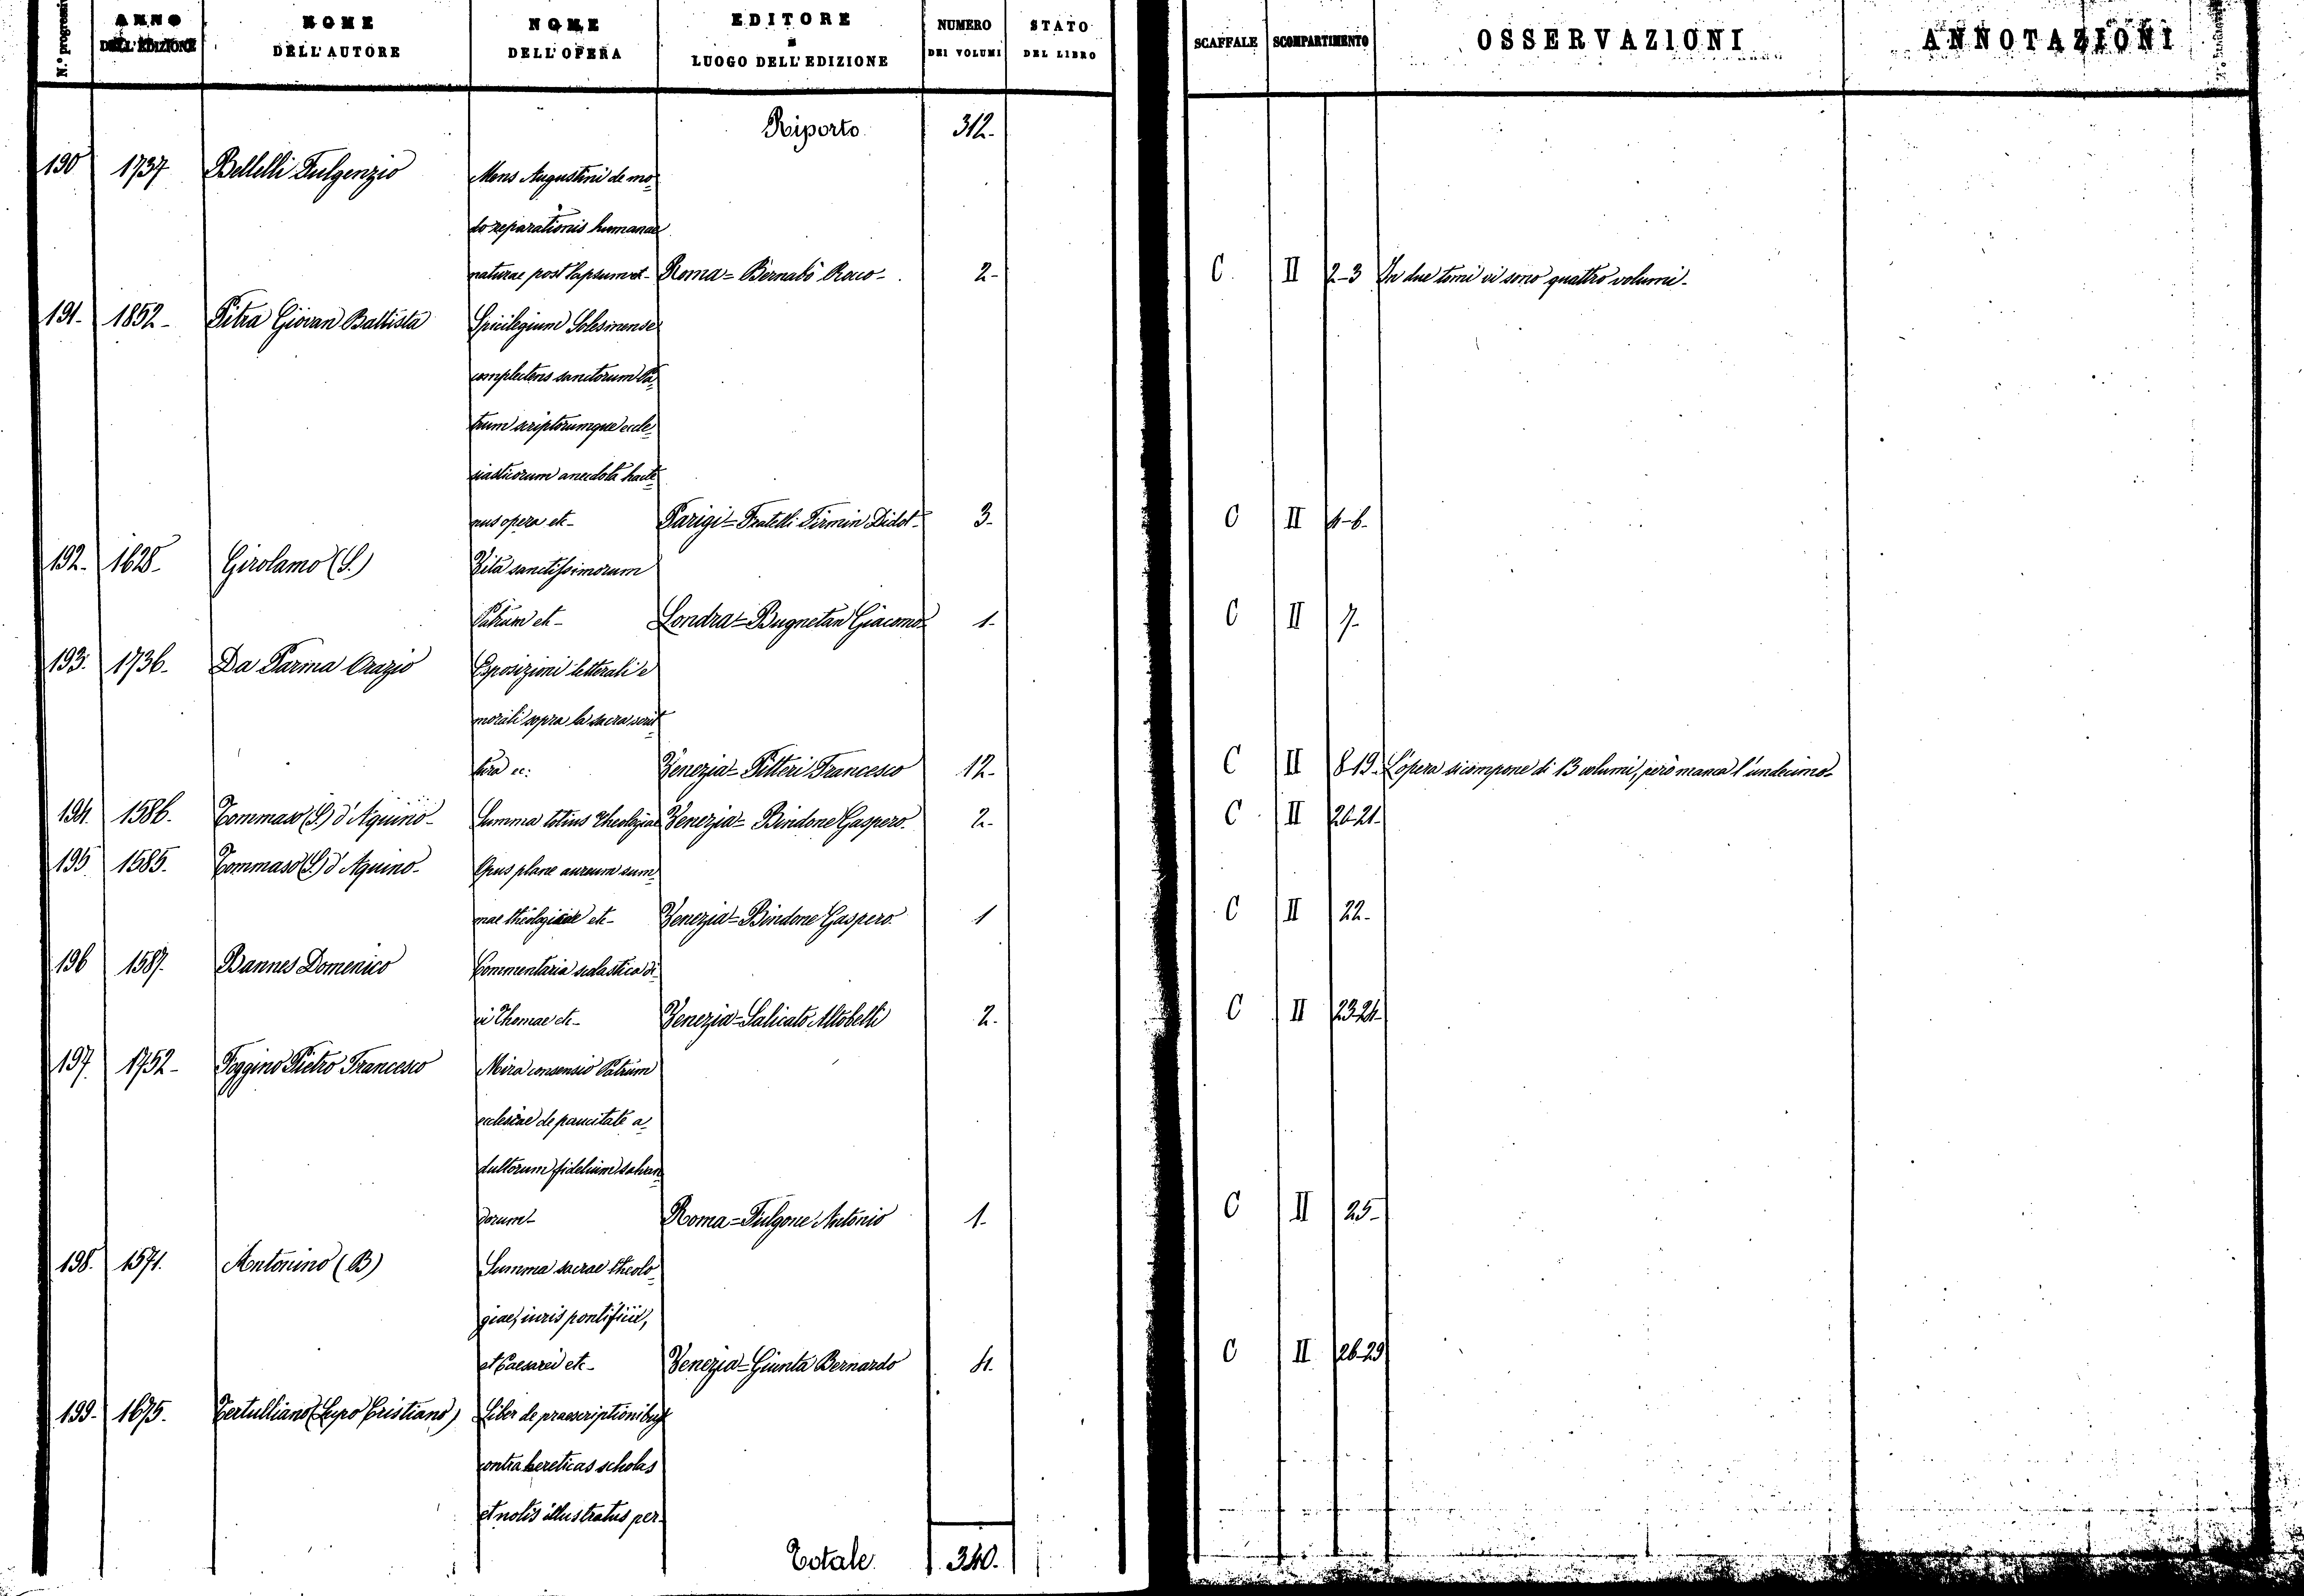 N.° progressi
ANNO DELL'EDIZIONE
NOME DELL'AUTORE
NOME DELL'OPERA
EDITORE E LUOGO DELL'EDIZIONE
NUMERO DEI VOLUMI
STATO DEL LIBRO
SCAFFALE
SCOMPARTIMENTO
OSSERVAZIONI
ANNOTAZIONI
Riporto 312.
190 1737 Bellelli Fulgenzio Mens Augustini de mo-
do reparationis humanae
naturae post lapsum et- Roma = Bernabò Rocco- 2- C. II 2-3 In due tomi vi sono quattro volumi-
191- 1852- Pitra Giovan Battista Spicilegium Solesmense
complectens sanctorum Pa-
trum scriptorumque eccle-
siasticorum anecdota hacte-
nus opera etc- Parigi = Fratelli Firmin Didot- 3- C II 4-6-
192- 1628- Girolamo (S.) Vita sanctissimorum
Patrum etc- Londra = Bugnetan Giacomo- 1- C II 7-
193. 1736- Da Parma Orazio Esposizioni letterali e
morali sopra la sacra scrit-
tura ec: Venezia = Pitteri Francesco 12- C II 8-19- L'opera si compone di 13 volumi, però manca l'undecimo-
194. 1586- Tommaso (S.) d'Aquino- Summa totius theologiae Venezia = Bindone Gaspero- 2- C II 20-21-
195 1585- Tommaso (S.) d'Aquino- Opus plane aureum sum-
mae theologicae etc- Venezia = Bindone Gaspero- 1 C II 22-
196 1587- Bannes Domenico Commentaria scolastica di-
vi Thomae etc- Venezia = Salicato Altobelli 2- C II 23-24-
197. 1752- Foggino Pietro Francesco Mira consensio Patrum
ecclesiae de paucitate a-
dultorum fidelium salvan-
dorum- Roma = Fulgone Antonio 1- C II 25-
198. 1571. Antonino (B) Summa sacrae theolo-
giae, iuris pontificii,
et Caesarei etc- Venezia = Giunta Bernardo 4. C II 26-29
199- 1675. Tertulliano (Lupo Cristiano) Liber de praescriptionibus
contra hereticas scholas
et notis illustratus per-
Totale 340.